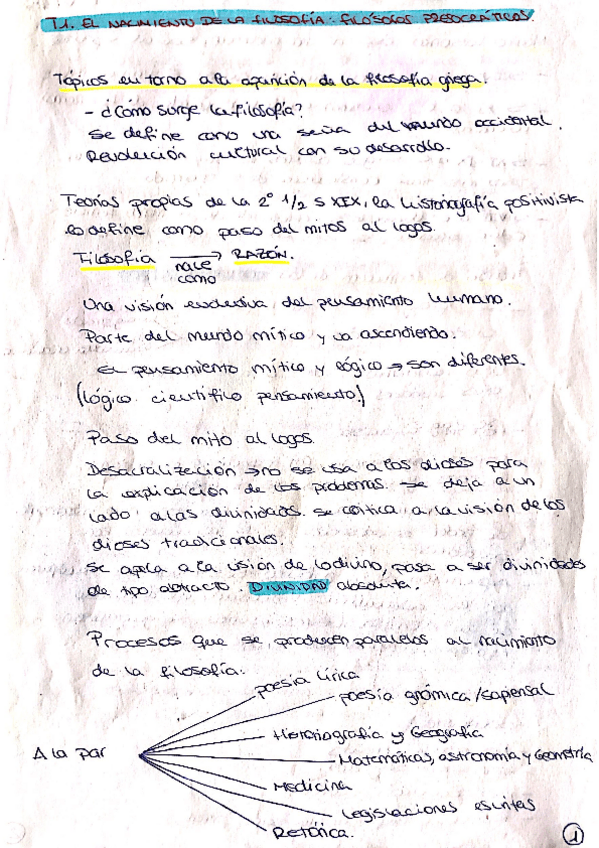 T.1. EL NACIMIENTO DE LA FILOSOFÍA: FILÓSOFOS PRESOCRÁTICOS.
Tópicos en torno a la aparición de la filosofía griega.
- ¿Cómo surge la filosofía?
Se define como una seña del mundo occidental.
Revolución cultural con su desarrollo.
Teorías propias de la 2º 1/2 S XIX, la historiografía positivista
lo define como paso del mitos al logos.
Filosofía → RAZÓN.
nace
como
Una visión evolutiva del pensamiento humano.
Parte del mundo mítico y va ascendiendo.
El pensamiento mítico y lógico → son diferentes.
(lógico científico pensamiento)
Paso del mito al logos.
Desacralización → no se usa a los dioses para
la explicación de los problemas. Se deja a un
lado a las divinidades. Se critica a la visión de los
dioses tradicionales.
Se apela a la visión de lo divino, pasa a ser divinidades
de tipo abstracto. DIVINIDAD absoluta.
Procesos que se producen paralelos al nacimiento
de la filosofía:
poesía lírica
poesía gnómica/sapiensal
Historiografía y Geografía
A la par
Matemáticas, astronomía y Geometría
Medicina
legislaciones escritas
Retórica.
1